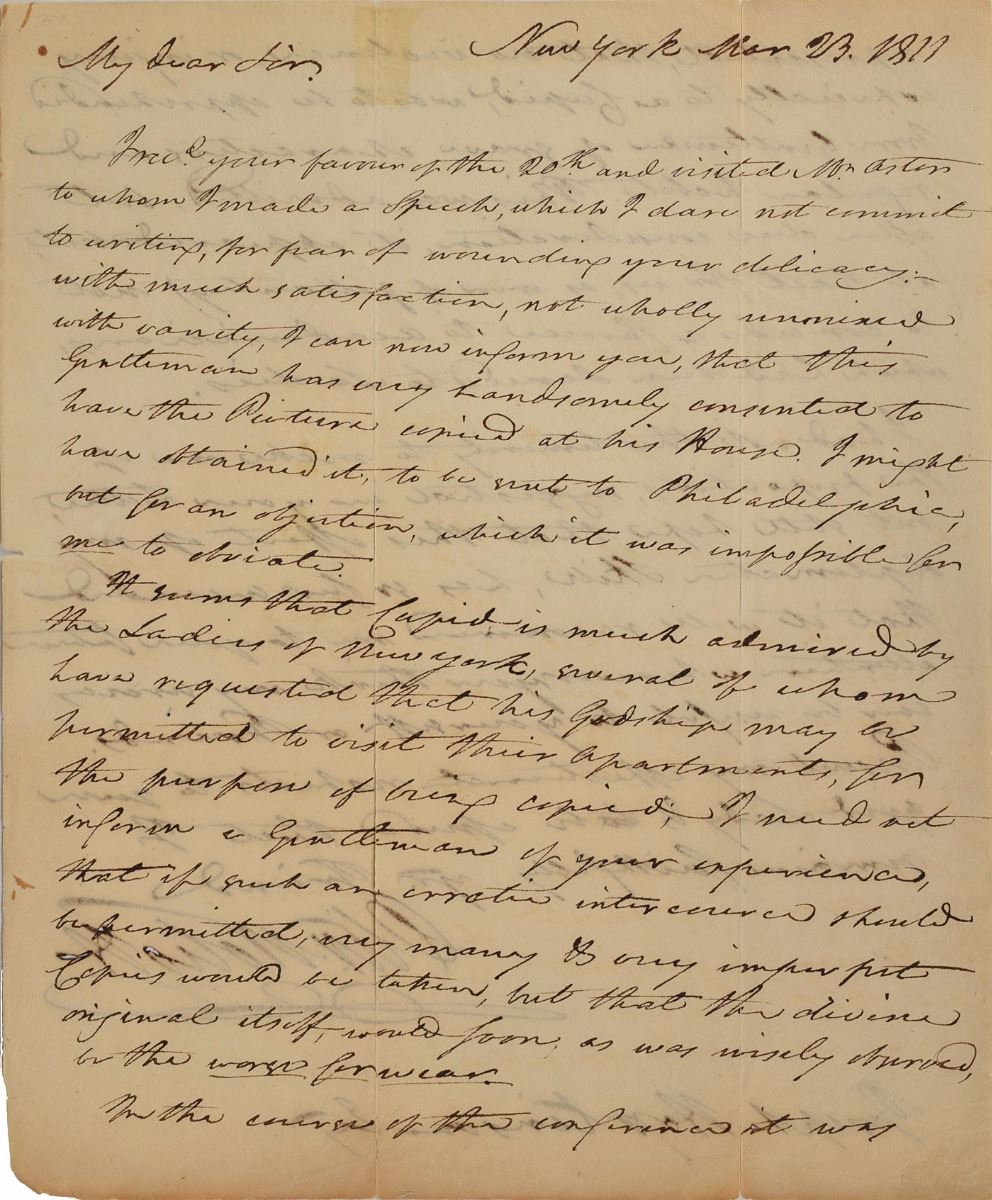 New York Mar 23. 1811
My dear Sir,
I rec.d your favour of the 20th and visited Mr. Astor
to whom I made a Speech, which I dare not commit
to writing, for fear of wounding your delicacy:-
with much satisfaction, not wholly unmixed
with vanity, I can now inform you, that this
Gentleman has very handsomely consented to
have the Picture copied at his House. I might
have obtained it, to be sent to Philadelphia,
but for an objection, which it was impossible for
me to obviate.
It seems that Cupid is much admired by
the Ladies of New York, several of whom
have requested that his Godship may be
permitted to visit their apartments, for
the purpose of being copied; I need not
inform a Gentleman of your experience,
that if such an erratic intercourse should
be permitted, very many & very imperfect
Copies would be taken, but that the divine
original itself, would soon, as was wisely observed,
be the worse for wear.
In the course of the conference it was